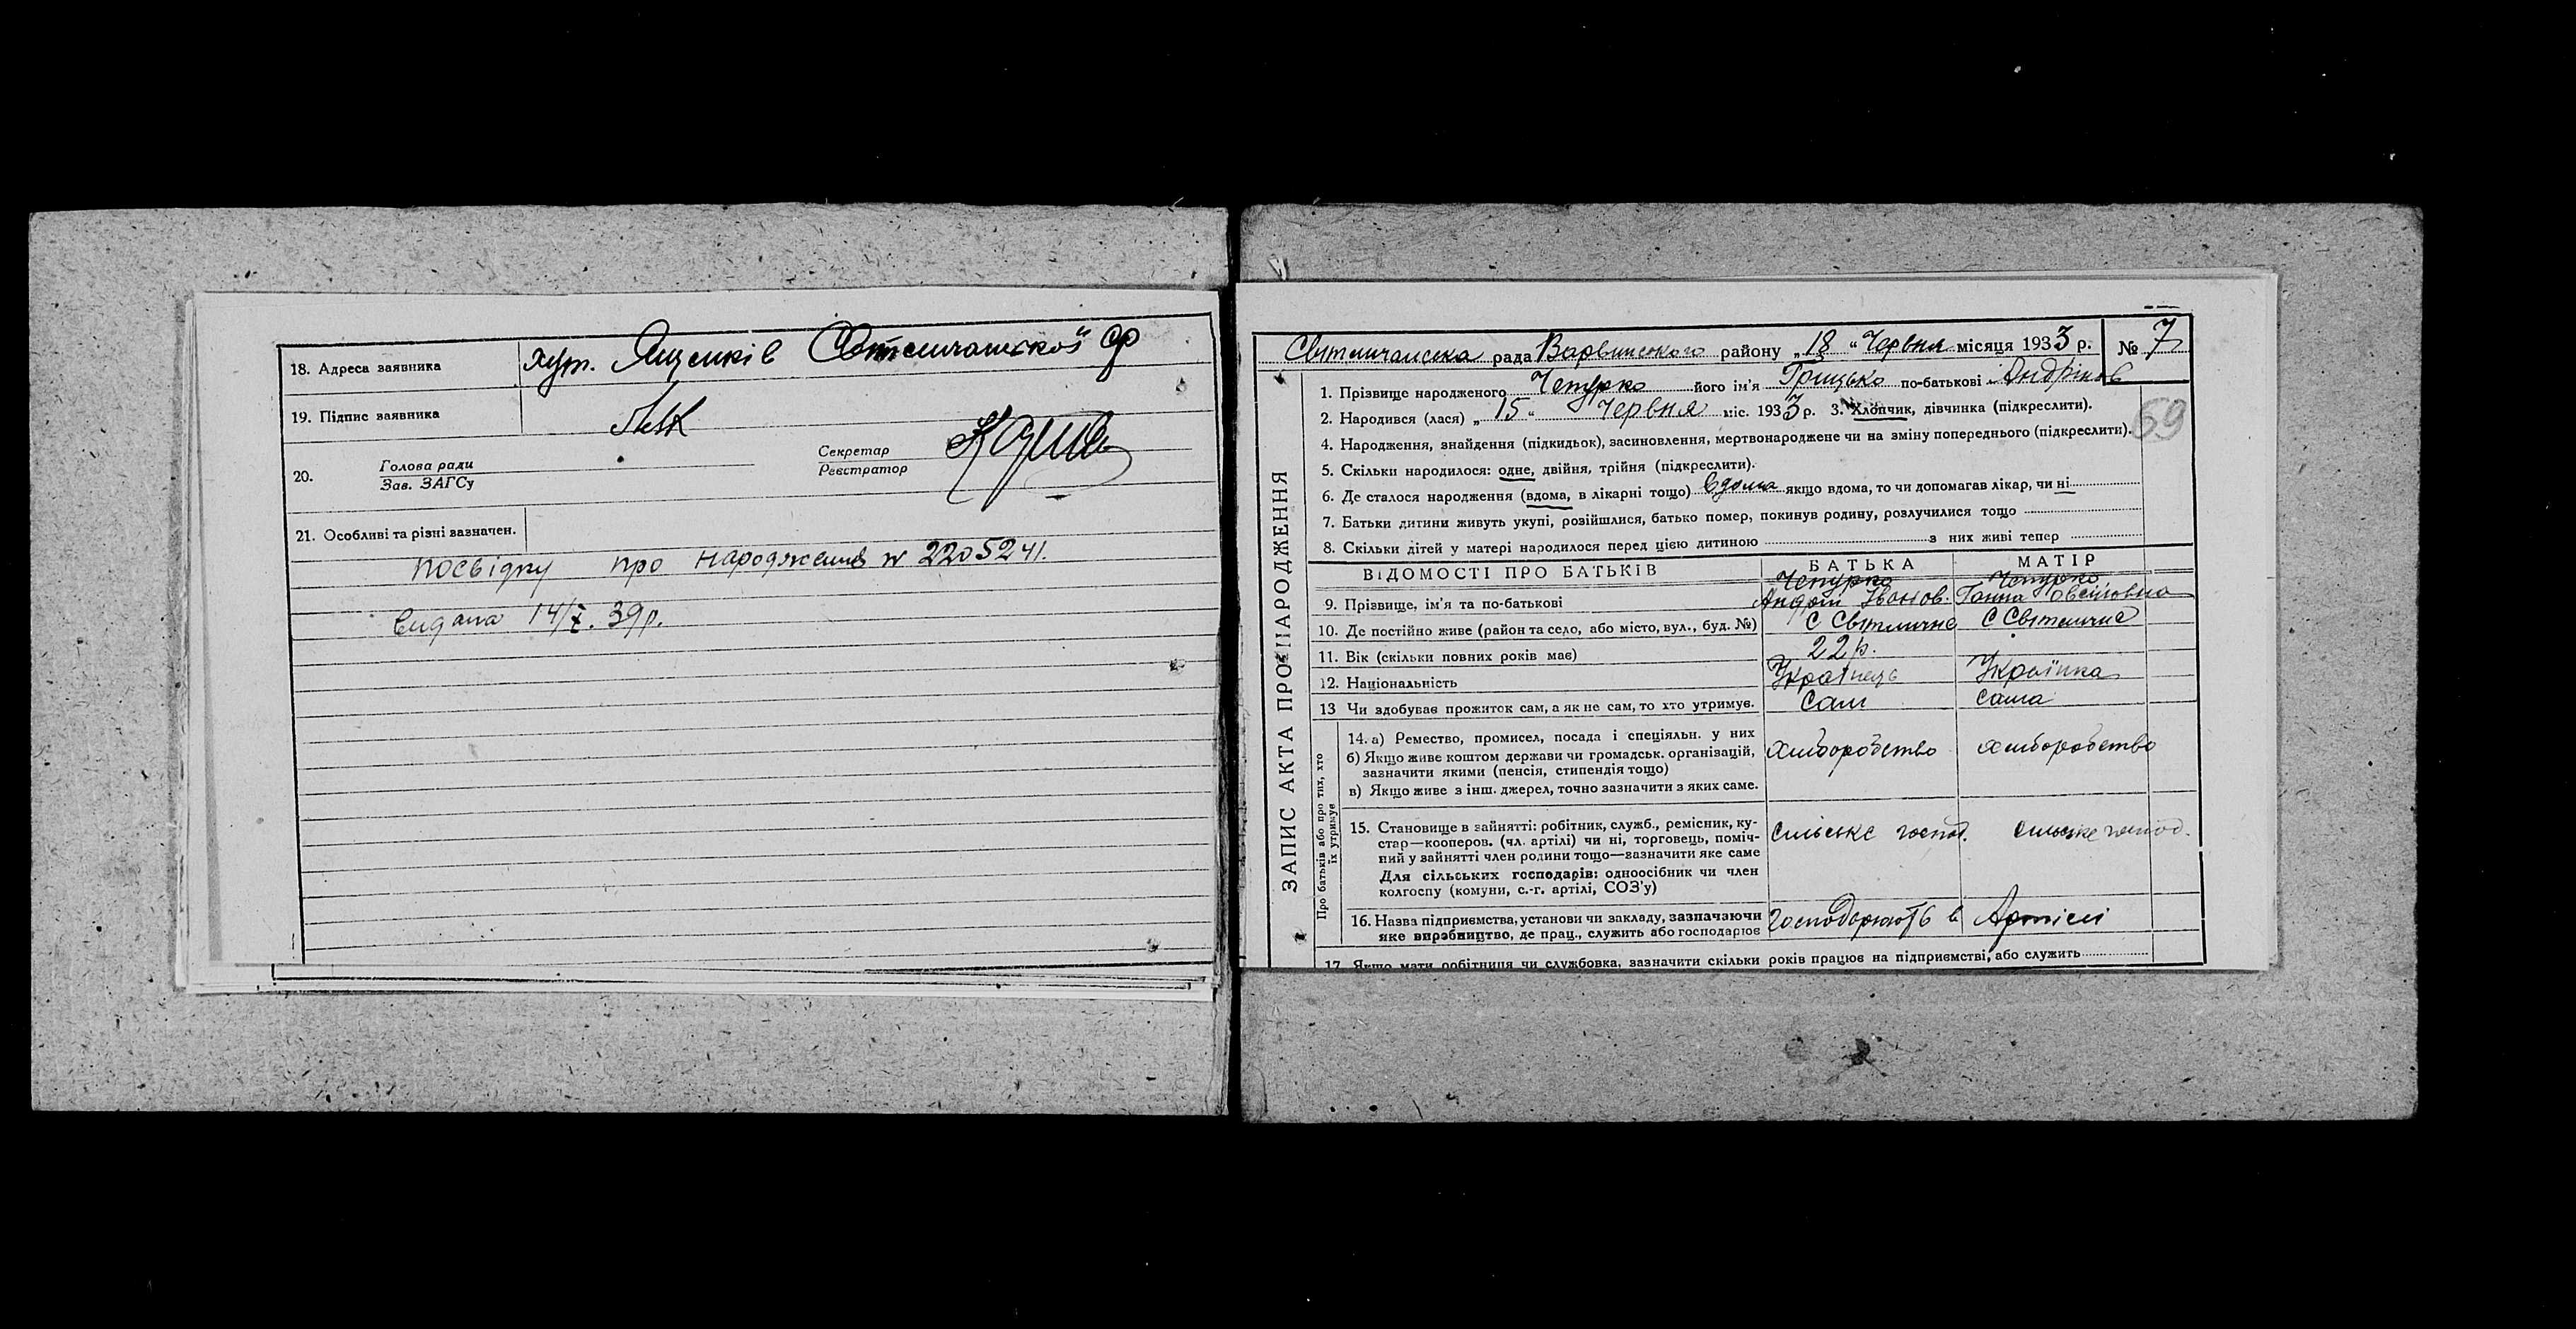 18. Адреса заявника хут. Ященків Світличанської ср
19. Підпис заявника
20. Голова ради
Зав. ЗАГСу
Секретар
Реєстратор
21. Особливі та різні зазначен.
посвідку про народження № 2205241.
видана 14/X. 39р.
Світличанська рада Варвинського району „18“ Червня місяця 1933 р. № 7
ЗАПИС АКТА ПРО НАРОДЖЕННЯ
1. Прізвище народженого Чепурко його ім'я Грицько по-батькові Андріїв
2. Народився (лася) „15“ Червня міс. 1933 р. 3. Хлопчик, дівчинка (підкреслити).
69
4. Народження, знайдення (підкидьок), засиновлення, мертвонароджене чи на зміну попереднього (підкреслити).
5. Скільки народилося: одне, двійня, трійня (підкреслити).
6. Де сталося народження (вдома, в лікарні тощо) вдома якщо вдома, то чи допомагав лікар, чи ні
7. Батьки дитини живуть укупі, розійшлися, батько помер, покинув родину, розлучилися тощо
8. Скільки дітей у матері народилося перед цією дитиною з них живі тепер
ВІДОМОСТІ ПРО БАТЬКІВ БАТЬКА МАТІР
Чепурко Чепурко
9. Прізвище, ім'я та по-батькові Андрій Іванов. Ганна Овсіївна
10. Де постійно живе (район та село, або місто, вул., буд. №) С Світличне С Світличне
11. Вік (скільки повних років має) 22 р.
12. Національність Українець Українка
13 Чи здобуває прожиток сам, а як не сам, то хто утримує. Сам сама
Про батьків або про тих, хто їх утримує
14. а) Ремество, промисел, посада і спеціяльн. у них
б) Якщо живе коштом держави чи громадськ. організацій, хліборобство хліборобство
зазначити якими (пенсія, стипендія тощо)
в) Якщо живе з інш. джерел, точно зазначити з яких саме.
15. Становище в зайнятті: робітник, служб., ремісник, ку-
стар—кооперов. (чл. артілі) чи ні, торговець, поміч- сільське господ. сільське господ.
ний у зайнятті член родини тощо—зазначити яке саме
Для сільських господарів: одноосібник чи член
колгоспу (комуни, с.-г. артілі, СОЗ'у)
16. Назва підприємства, установи чи закладу, зазначаючи господарюють в Артілі
яке виробництво, де прац., служить або господарює
17. Якщо мати робітниця чи службовка, зазначити скільки років працює на підприємстві, або служить